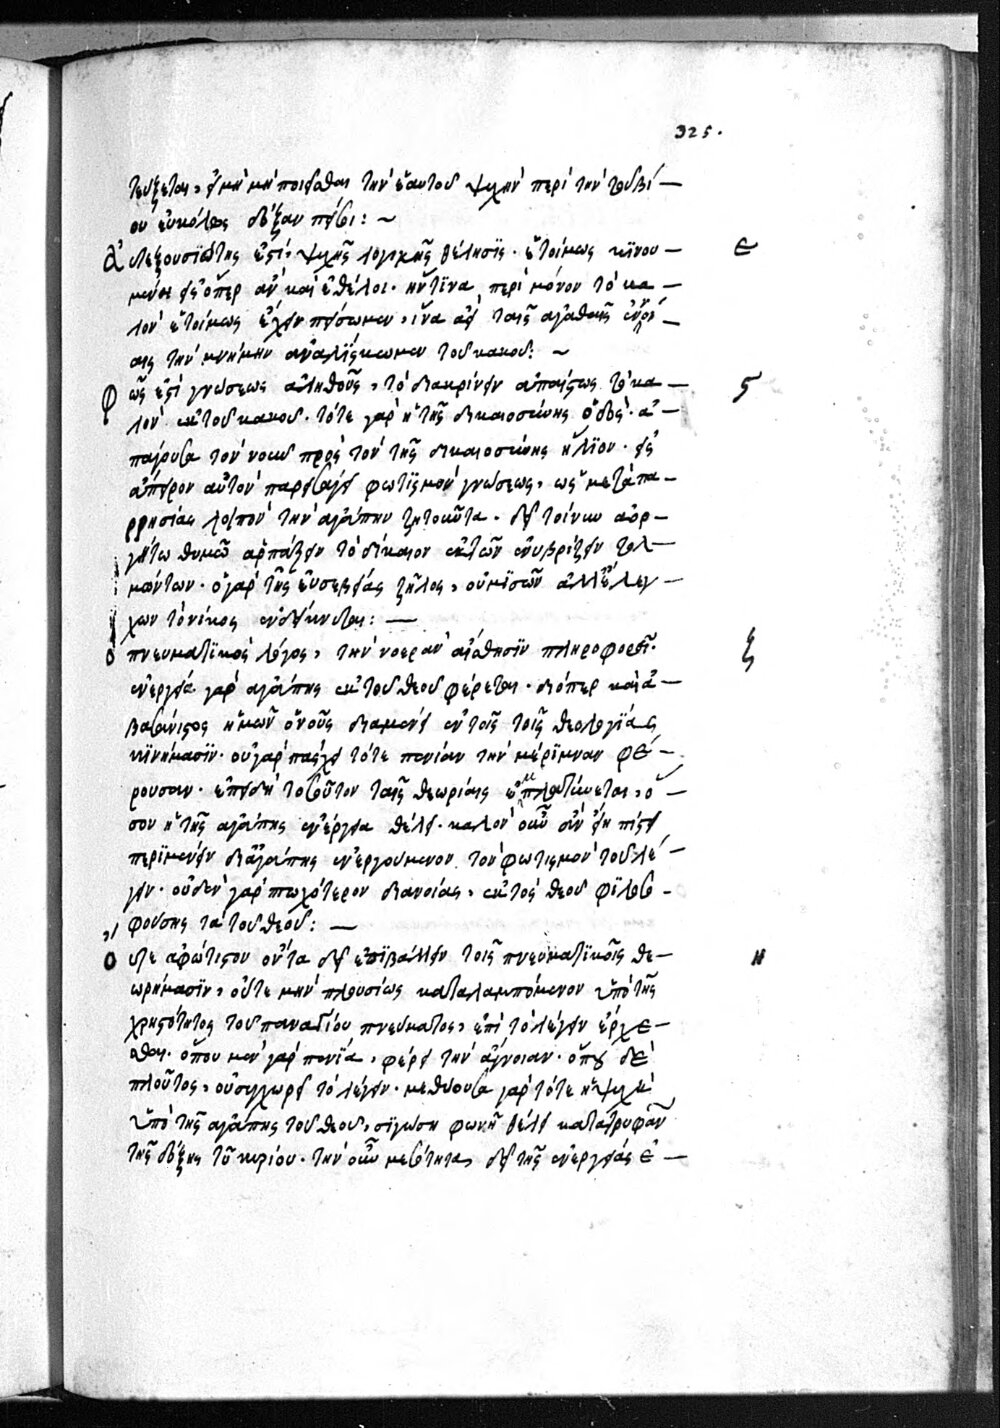 325.
τεύξεται, εἰ μὴ μὴ ποιεῖσθαι τὴν ἑαυτοῦ ψυχὴν περὶ τὴν τοῦ βί–
ου εὐκόλως δόξαν πείσει: ~
Αὐτεξουσιότης ἐστὶ, ψυχῆς λογικῆς θέλησις. ἑτοίμως κινου– ε
μένη εἰς ὅπερ ἂν καὶ ἐθέλοι. ἥντινα περὶ μόνον τὸ κα–
λὸν ἑτοίμως ἔχειν πείσωμεν, ἵνα ἀεὶ ταῖς ἀγαθαῖς ἐννοί–
αις τὴν μνήμην ἀναλίσκωμεν τοῦ κακοῦ: ~
Φῶς ἐστὶ γνώσεως ἀληθοῦς, τὸ διακρίνειν ἀπταίστως τὸ κα– ϛ
λὸν ἐκ τοῦ κακοῦ. τότε γὰρ ἡ τῆς δικαιοσύνης ὁδὸς. ἀ–
πάγουσα τὸν νοῦν πρὸς τὸν τῆς δικαιοσύνης ἥλιον. εἰς
ἄπειρον αὐτὸν παρεισάγει φωτισμὸν γνώσεως, ὡς μετὰ πα–
ρρησίας λοιπὸν τὴν ἀγάπην ζητοῦντα. δεῖ τοίνυν ἀορ–
γήτω θυμῷ ἁρπάζειν τὸ δίκαιον ἐκ τῶν ἐνυβρίζειν τολ–
μώντων. ὁ γὰρ τῆς εὐσεβείας ζῆλος, οὐ μισῶν ἀλλ' ἐλέγ–
χων τὸ νῖκος ἐνδείκνυται: —
Ὁ πνευματικὸς λόγος, τὴν νοερὰν αἴσθησιν πληροφορεῖ. ζ
ἐνεργείᾳ γὰρ ἀγάπης ἐκ τοῦ θεοῦ φέρεται. διόπερ καὶ ἀ–
βασάνιστος ἡμῶν ὁ νοῦς διαμένει ἐν τοῖς τῆς θεολογίας
κινήμασιν. οὐ γὰρ πάσχει τότε πενίαν τὴν μέριμναν φέ–
ρουσαν. ἐπειδὴ τοσοῦτον ταῖς θεωρίαις ἐμπλατύνεται, ὅ–
σον ἡ τῆς ἀγάπης ἐνέργεια θέλει. καλὸν οὖν ἀεὶ ἐν πίστει
περιμένειν δι' ἀγάπης ἐνεργουμένην τὸν φωτισμὸν τοῦ λέ–
γειν. οὐδὲν γὰρ πτωχότερον διανοίας, ἐκτὸς θεοῦ φιλοσο–
φούσης τὰ τοῦ θεοῦ: —
Οὔτε ἀφώτιστον ὄντα δεῖ ἐπιβάλλειν τοῖς πνευματικοῖς θε– η
ωρήμασιν, οὔτε μὴν πλουσίως καταλαμπόμενον ὑπὸ τῆς
χρηστότητος τοῦ παναγίου πνεύματος, ἐπὶ τὸ λέγειν ἔρχε–
σθαι. ὅπου μὲν γὰρ πενία, φέρει τὴν ἄγνοιαν. ὅπου δὲ
πλοῦτος, οὐ συγχωρεῖ τὸ λέγειν. μεθύουσα γὰρ τότε ἡ ψυχὴ
ὑπὸ τῆς ἀγάπης τοῦ θεοῦ, σιγώσῃ φωνῇ θέλει κατατρυφᾶν
τῆς δόξης τοῦ κυρίου. τὴν οὖν μεσότητα, δεῖ τῆς ἐνεργείας ἐ–